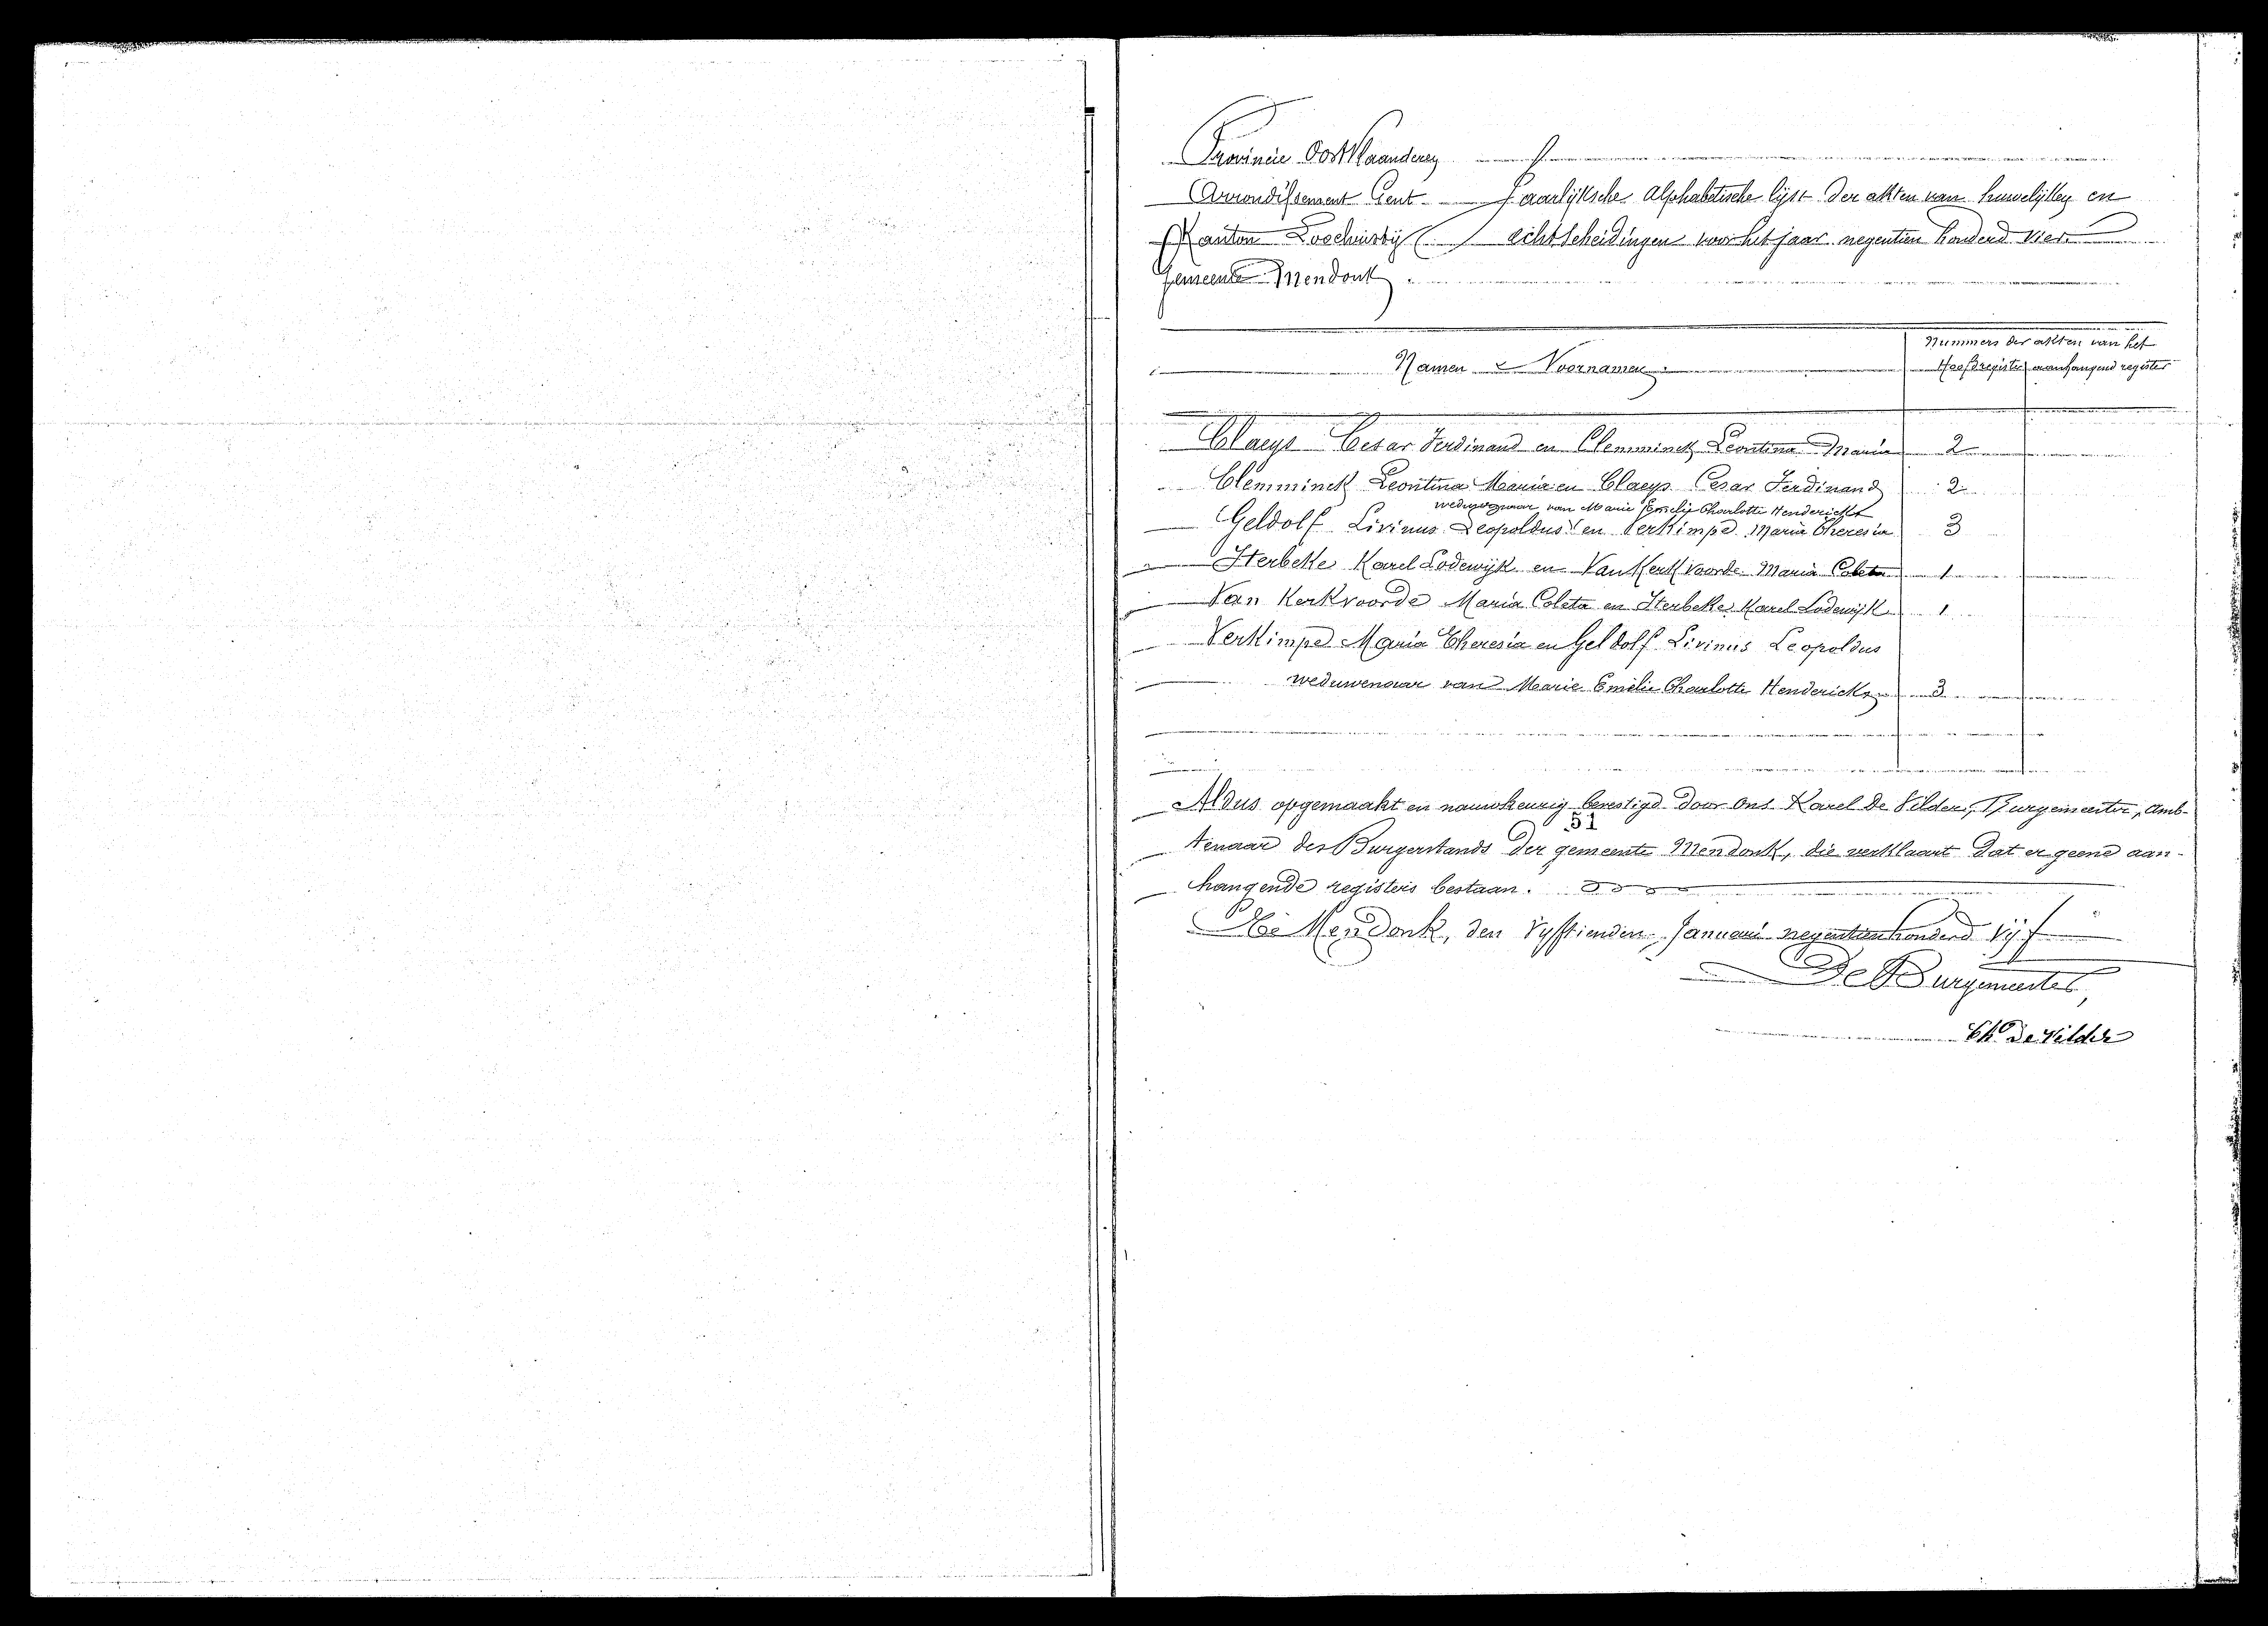 Provincie OostVlaanderen
Arrondissement Gent Jaarlijksche Alphabetische lijst der akten van huwelijken en
Kanton Loochristij echtscheidingen voor het jaar negentien honderd vier
Gemeente Mendonk
Nummers der akten van het
Namen & Voornamen Hoofdregister aanhangend register
Claeys Cesar Ferdinand en Clemminck Leontina Maria 2
Clemminck Leontina Maria en Claeys Cesar Ferdinand 2
weduwenaar van Marie Emelie Charlotte Hendericks
Geldolf Livinus Leopoldus en Verkimpe Maria Theresia 3
Sterbeke Karel Lodewijk en Van Kerkvoorde Maria Coleta 1
Van Kerkvoorde Maria Coleta en Sterbeke Karel Lodewijk 1
Verkimpe Maria Theresia en Geldolf Livinus Leopoldus
weduwenaar van Marie Emelie Charlotte Hendericks 3
Aldus opgemaakt en nauwkeurig bevestigd door ons Karel De Vilder, Burgemeester, Amb-
51
tenaar des Burgerstands der gemeente Mendonk, die verklaart dat er geene aan-
hangende registers bestaan.
Te Mendonk, den Vyftienden Januari negentienhonderd vijf
De Burgemeester,
Ch De Vilder